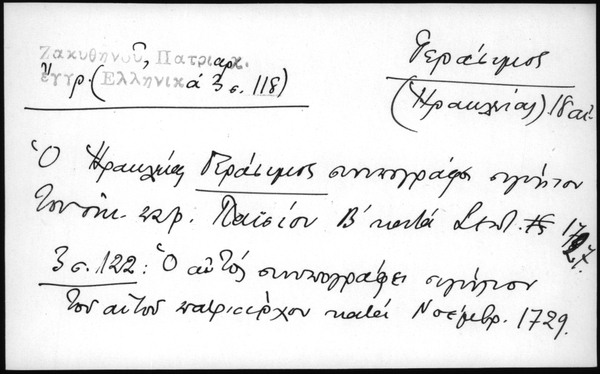 Ζακυθηνοῦ, Πατριαρχ.
ἔγγρ. (Ἑλληνικά 3 σ. 118)
Γεράσιμος
(Ἡρακλείας) 18 αἰ.
Ὁ Ἡρακλείας Γεράσιμος συνυπογράφει σιγίλλιον
τοῦ οἰκ. πατρ. Παϊσίου Β' κατά Σεπτ. 1727.
3 σ. 122: Ὁ αὐτός συνυπογράφει σιγίλλιον
τοῦ αὐτοῦ πατριάρχου κατά Νοέμβρ. 1729.